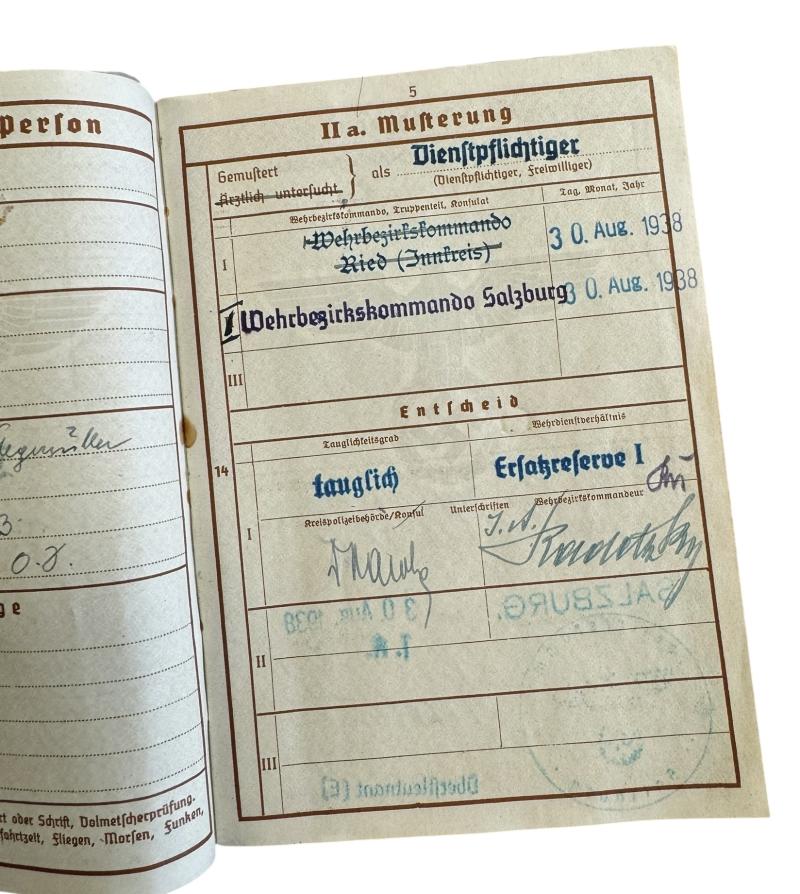 Person
O.D.
ge
rt oder Schrift, Dolmetscherprüfung.
fahrtzeit, Fliegen, Morsen, Funken,
5
II a. Musterung
Gemustert
Ärztlich untersucht
als
Dienstpflichtiger
(Dienstpflichtiger, Freiwilliger)
Wehrbezirkskommando, Truppenteil, Konsulat
Tag, Monat, Jahr
I
Wehrbezirkskommando
Ried (Innkreis)
30. Aug. 1938
I Wehrbezirkskommando Salzburg
30. Aug. 1938
III
Entscheid
Tauglichkeitsgrad
Wehrdienstverhältnis
14
tauglich
Ersatzreserve I
Kreispolizeibehörde/Konsul
Unterschriften
Wehrbezirkskommandeur
I
I.A.
30 Aug 1938
SALZBURG.
II
I.A.
III
Oberstleutnant (E)